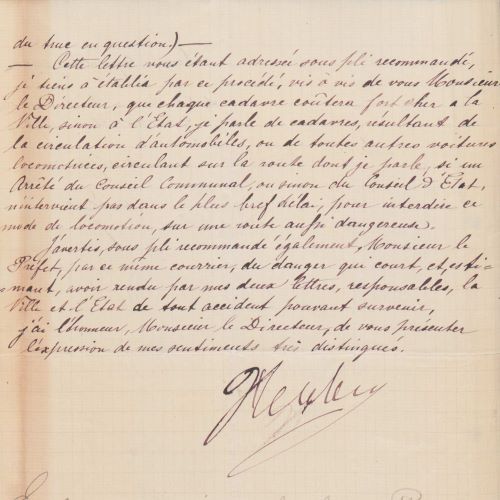 du truc en question.) —
— Cette lettre vous étant adressée sous pli recommandé,
je tiens à établir par ce procédé, vis à vis de vous Monsieur
le Directeur, que chaque cadavre coûtera fort cher a la
Ville, sinon à l'Etat, je parle de cadavres, résultant de
la circulation d'automobiles, ou de toutes autres voitures
locomotrices, circulant sur la route dont je parle, si un
Arrêté du Conseil Communal, ou sinon du Conseil d'Etat,
n'intervient pas dans le plus bref délai, pour interdire ce
mode de locomotion, sur une route aussi dangereuse.
J'avertis, sous pli recommandé également, Monsieur le
Préfet, par ce même courrier, du danger qui court, et, esti-
mant, avoir rendu par mes deux lettres, responsables, la
Ville et l'Etat de tout accident pouvant survenir,
j'ai l'honneur, Monsieur le Directeur, de vous présenter
l'expression de mes sentiments très distingués.